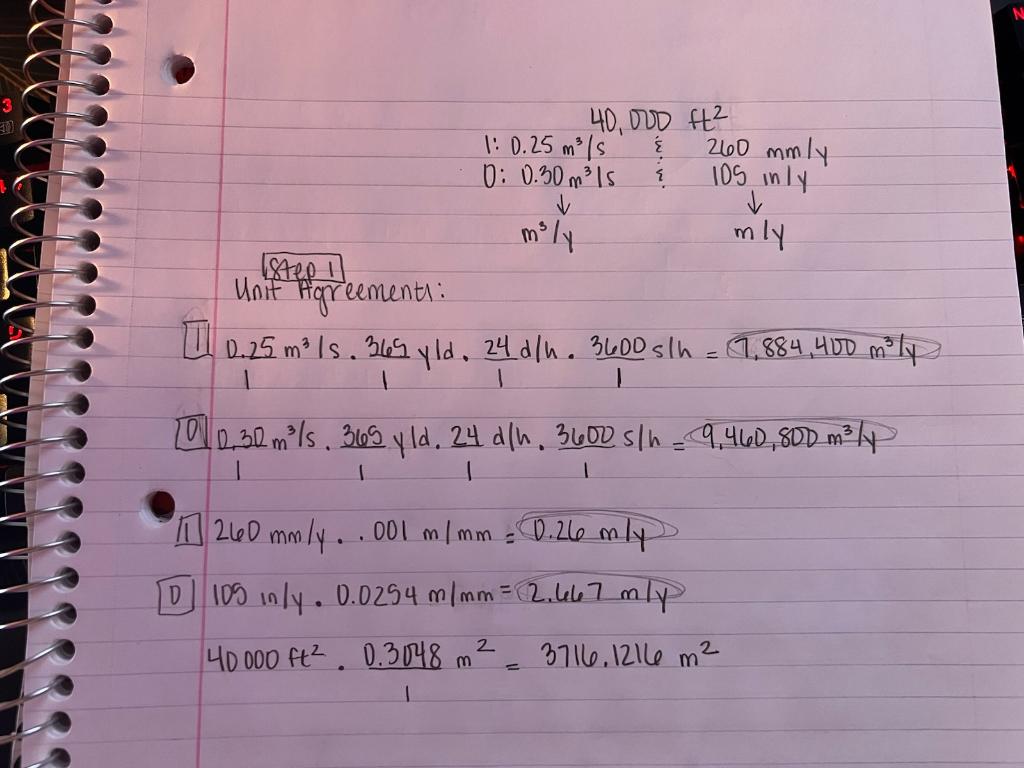 40,000 ft²
I: 0.25 m³/s & 260 mm/y
O: 0.30 m³/s & 105 in/y
↓ ↓
m³/y m/y
Step 1
Unit Agreements:
I 0.25 m³/s . 365 y/d . 24 d/h . 3600 s/h = 7,884,400 m³/y
1 1 1 1
O 0.30 m³/s . 365 y/d . 24 d/h . 3600 s/h = 9,460,800 m³/y
1 1 1 1
I 260 mm/y . .001 m/mm = 0.26 m/y
O 105 in/y . 0.0254 m/mm = 2.667 m/y
40000 ft² . 0.3048 m² = 3716.1216 m²
1